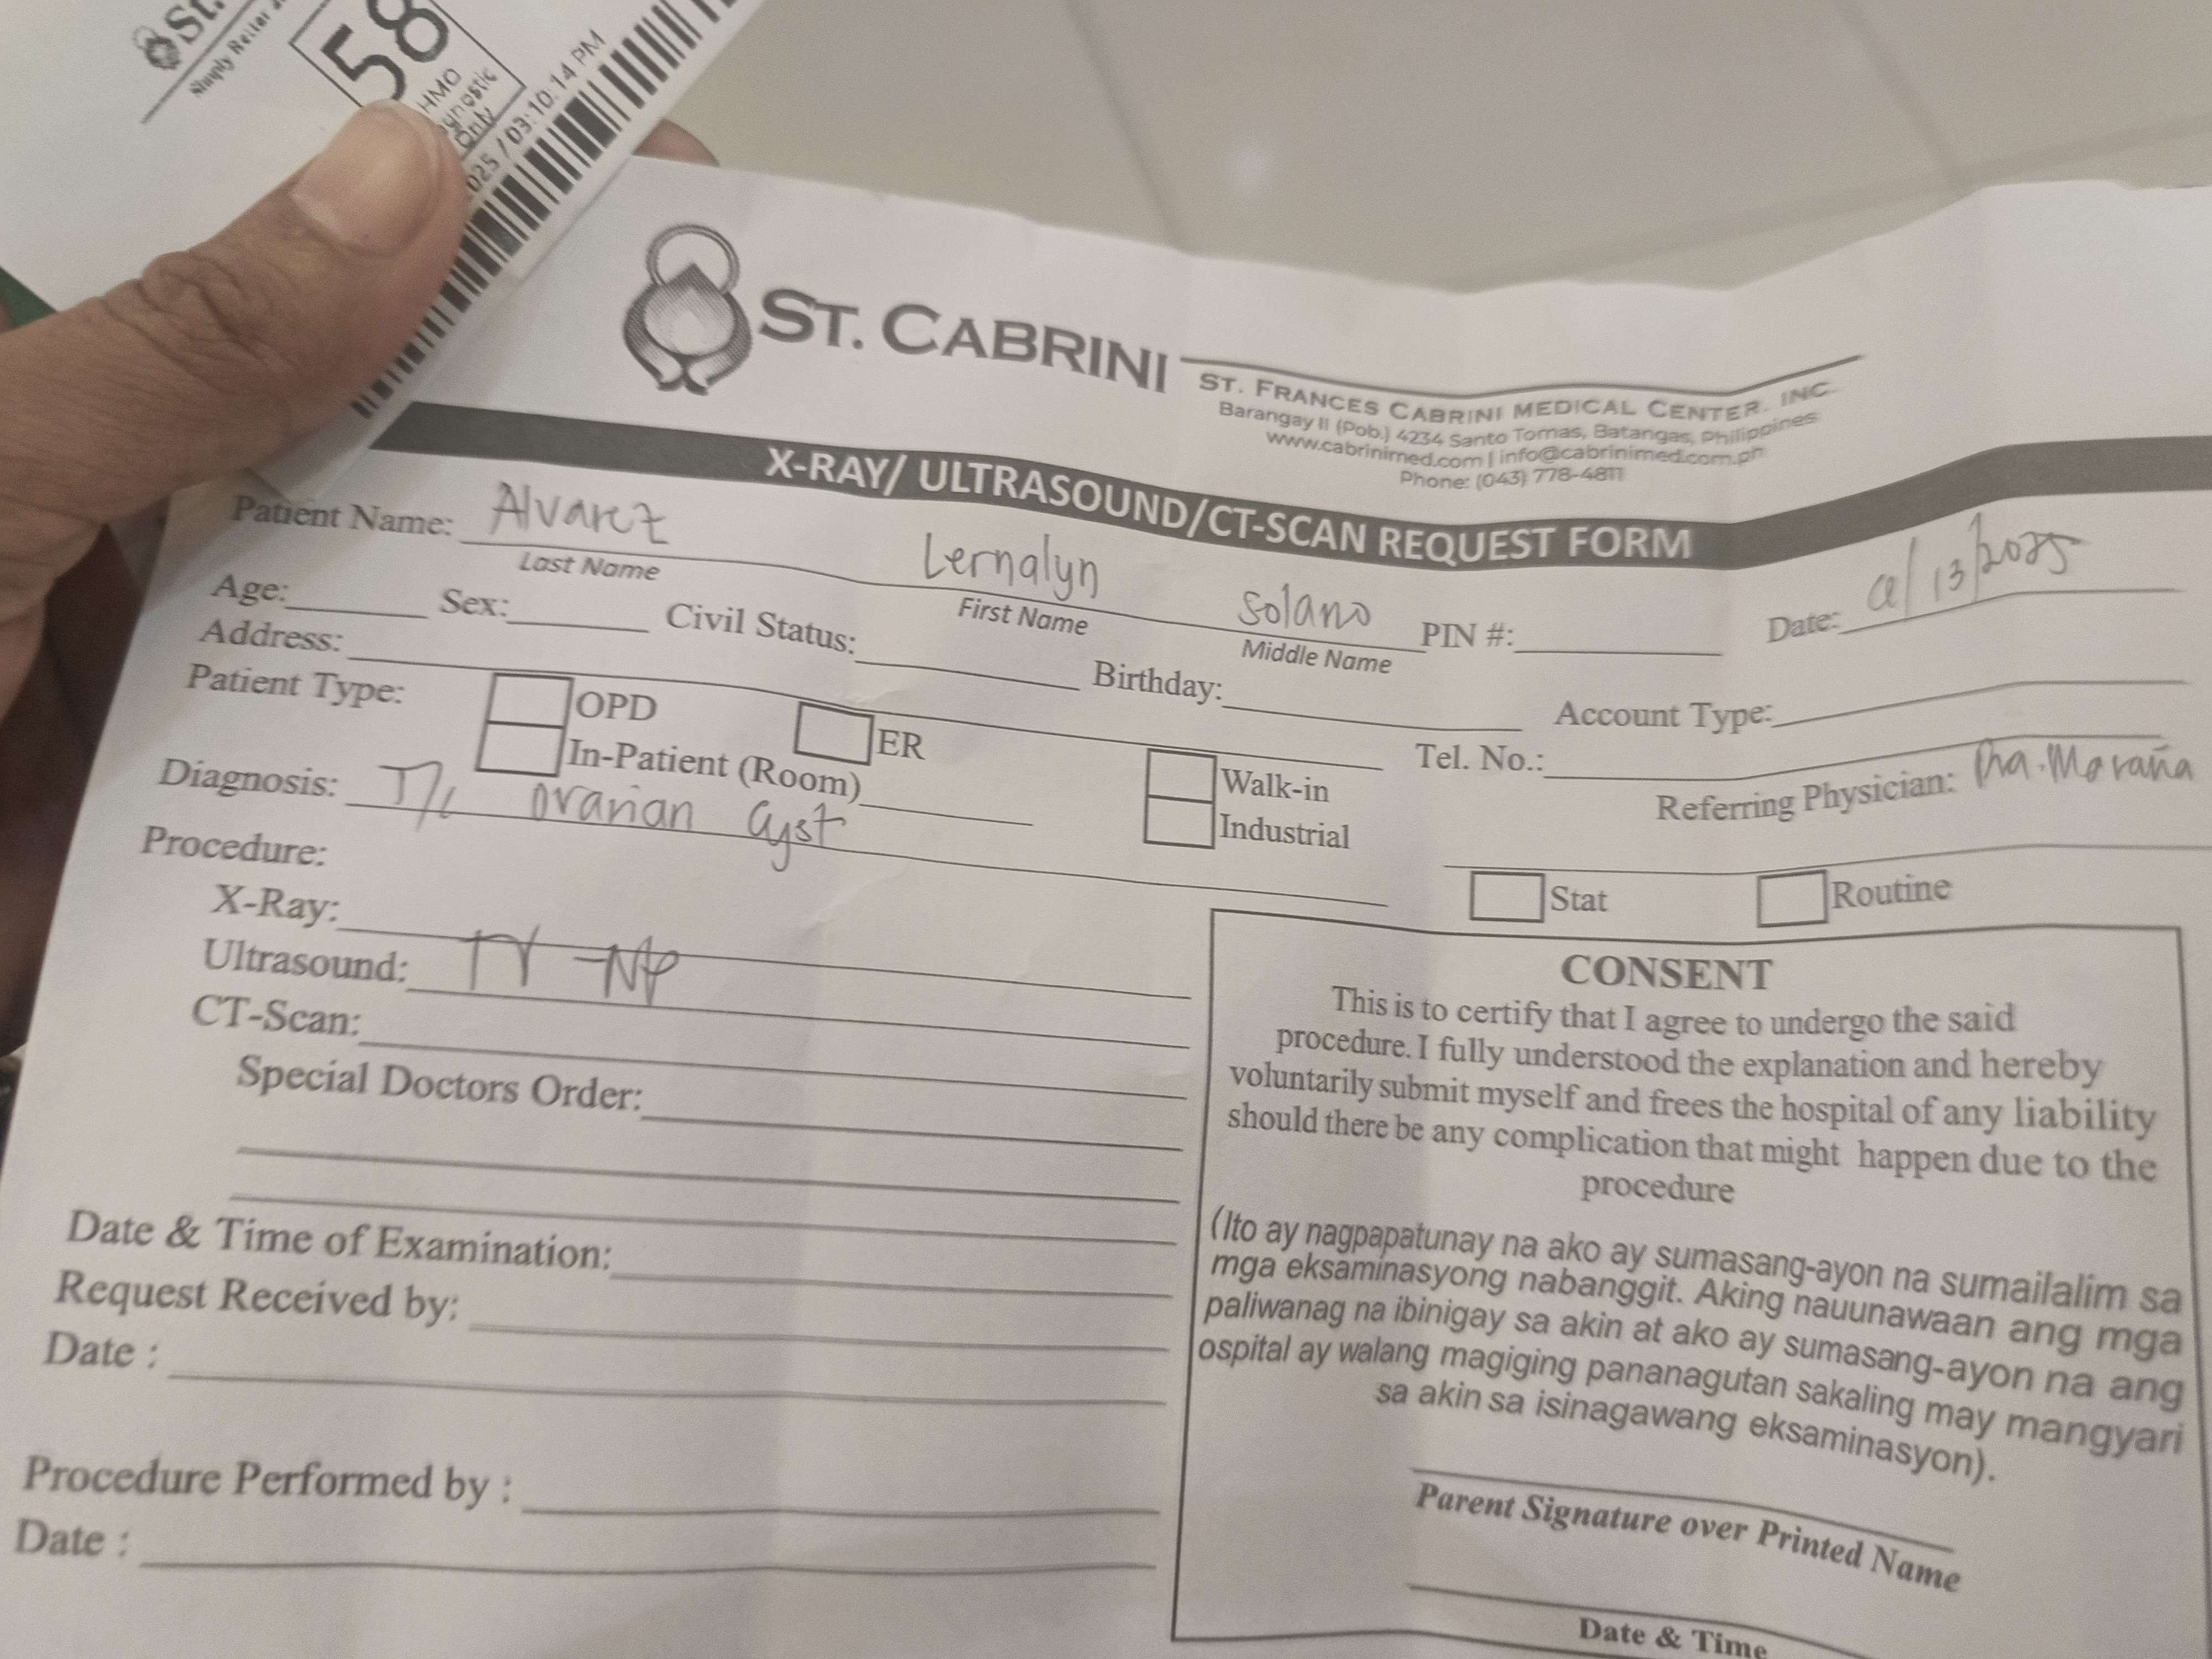 St.
Simply Better
58
HMO
Only
025 / 03:10:14 PM
ST. CABRINI
ST. FRANCES CABRINI MEDICAL CENTER, INC.
Barangay II (Pob.) 4234 Santo Tomas, Batangas, Philippines
www.cabrinimed.com | info@cabrinimed.com.ph
Phone: (043) 778-4811
X-RAY/ ULTRASOUND/CT-SCAN REQUEST FORM
Patient Name: Alvarez Lernalyn Solano PIN #: Date: /13/2025
Last Name First Name Middle Name
Age: Sex: Civil Status: Birthday: Account Type:
Address: Tel. No.:
Patient Type: OPD ER Walk-in Referring Physician: Dra. Maraña
In-Patient (Room) Industrial
Diagnosis: T/c ovarian cyst
Stat Routine
Procedure:
X-Ray:
Ultrasound: TV -
CT-Scan:
Special Doctors Order:
Date & Time of Examination:
Request Received by:
Date :
Procedure Performed by :
Date :
CONSENT
This is to certify that I agree to undergo the said
procedure. I fully understood the explanation and hereby
voluntarily submit myself and frees the hospital of any liability
should there be any complication that might happen due to the
procedure
(Ito ay nagpapatunay na ako ay sumasang-ayon na sumailalim sa
mga eksaminasyong nabanggit. Aking nauunawaan ang mga
paliwanag na ibinigay sa akin at ako ay sumasang-ayon na ang
ospital ay walang magiging pananagutan sakaling may mangyari
sa akin sa isinagawang eksaminasyon).
Parent Signature over Printed Name
Date & Time